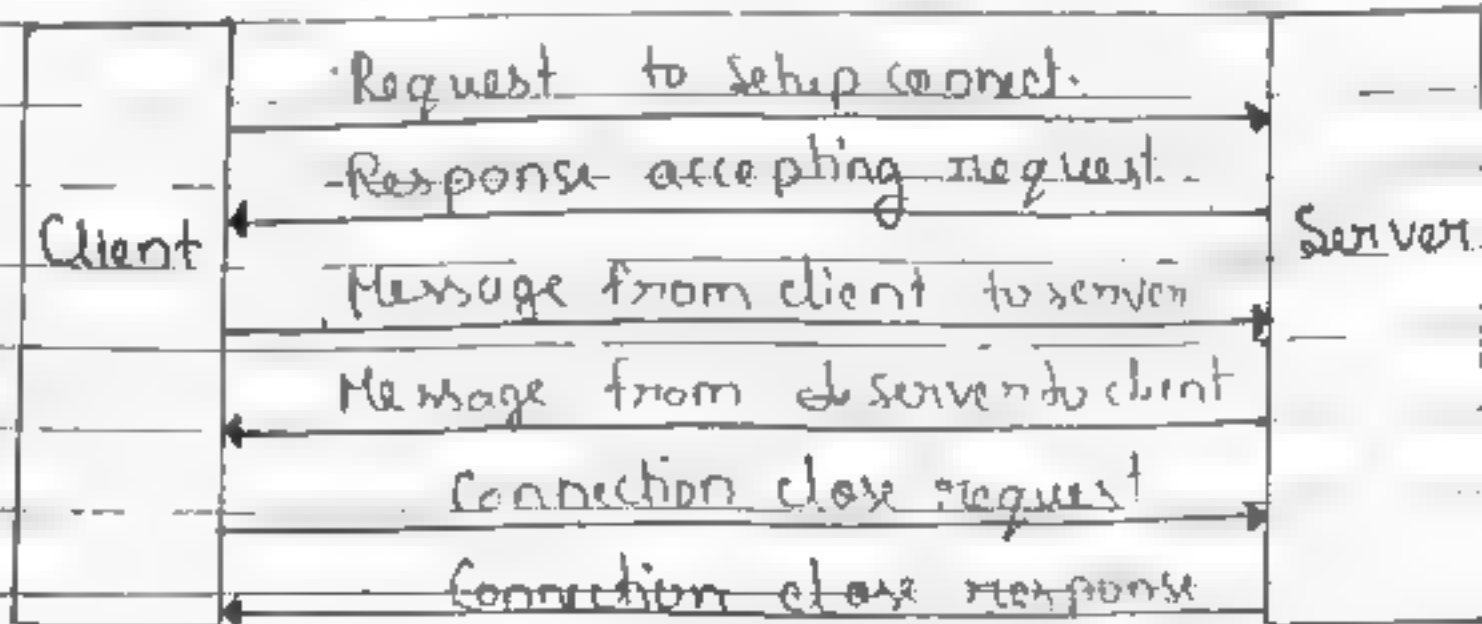 Request to setup connect.
Response accepting request.
Client
Server
Message from client to server
Message from server to client
Connection close request
Connection close response